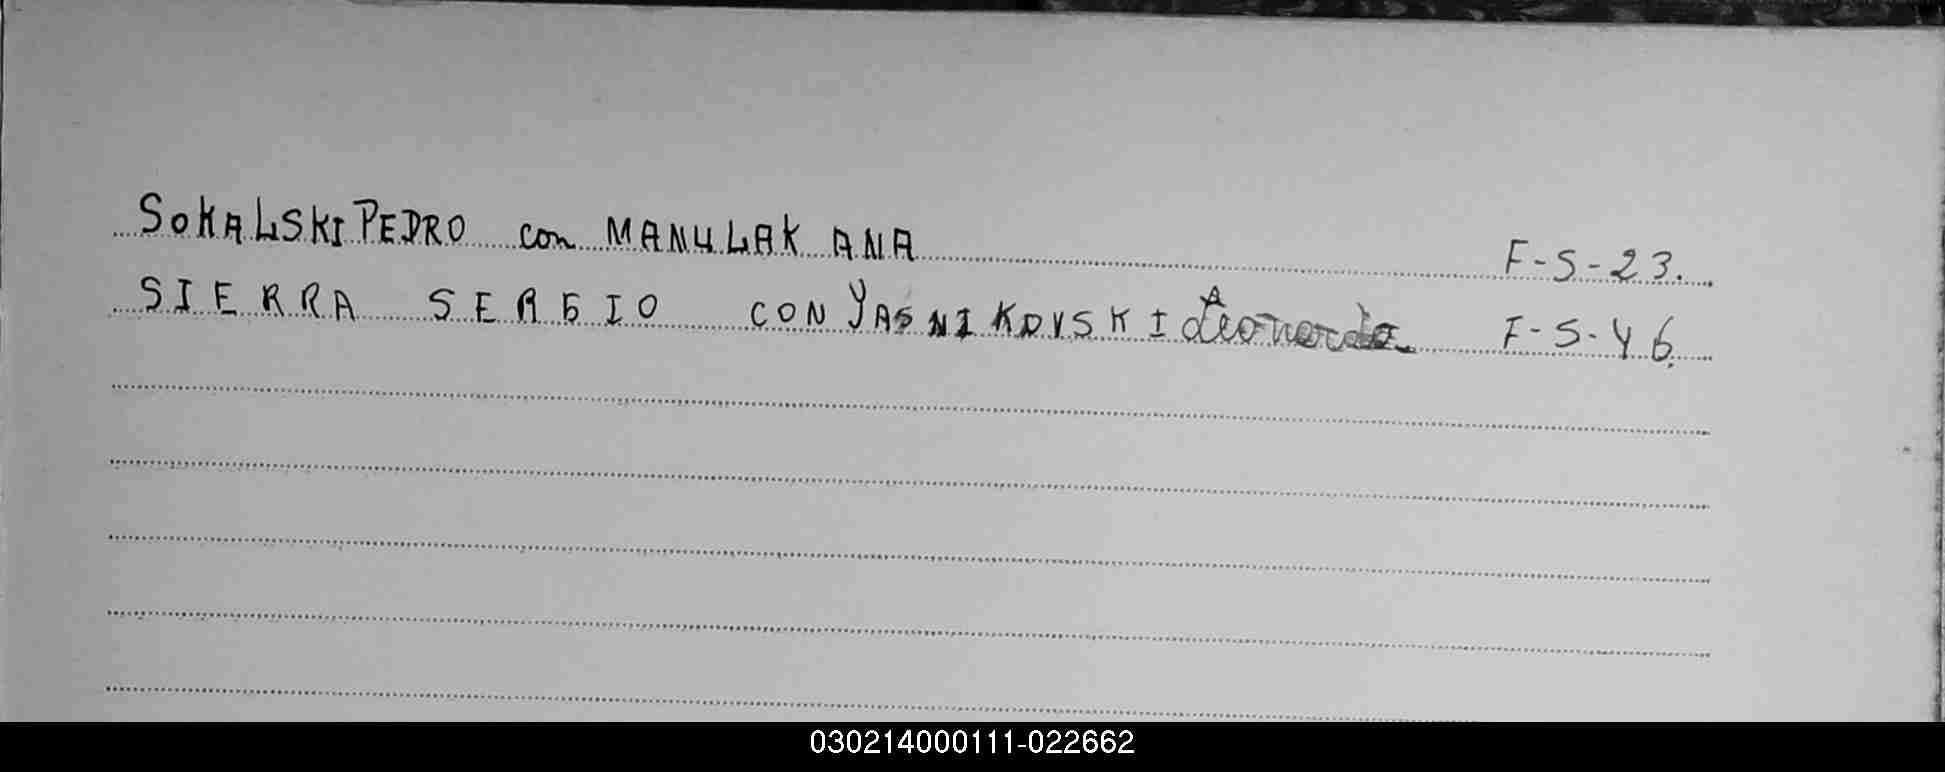 SOKALSKI PEDRO con MANULAK ANA F-S-23.
SIERRA SERGIO CON YASNIKOVSKI A Leonarda F-S-46.
030214000111-022662